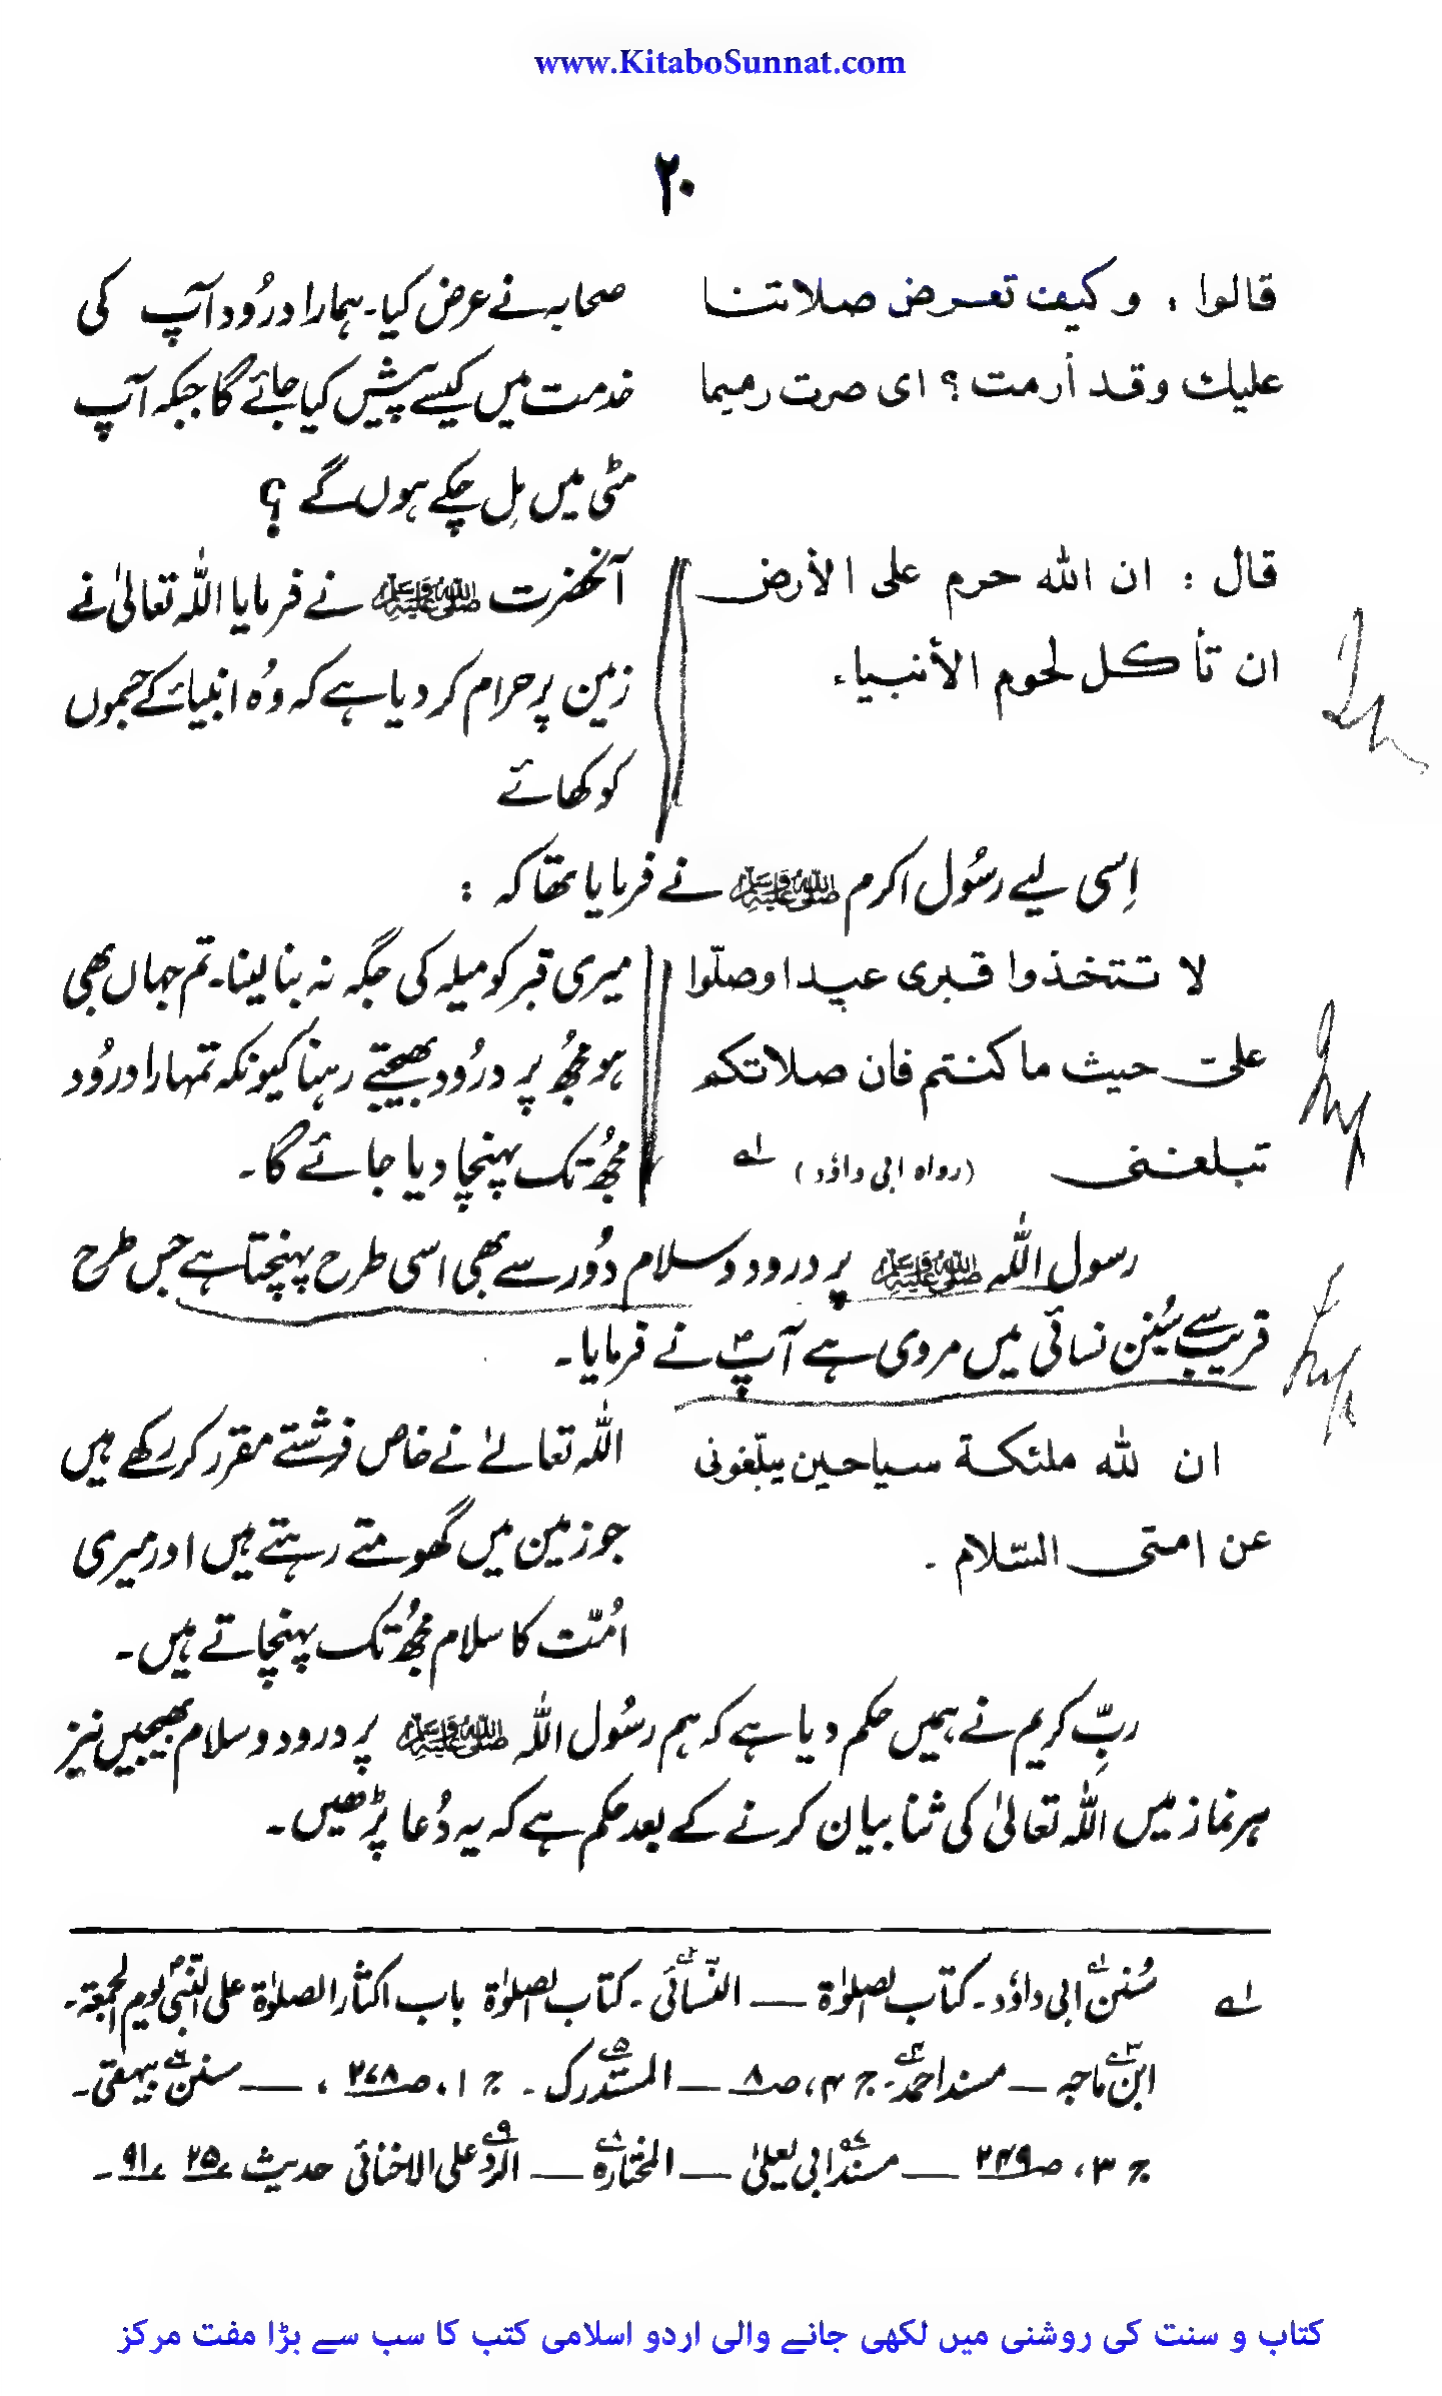 www.KitaboSunnat.com
۲۰
قالوا : وكيف تعرض صلاتنا
عليك وقد أرمت ؟ اى صرت رميما
صحابہ نے عرض کیا۔ ہمارا درُود آپ کی
خدمت میں کیسے پیش کیا جائے گا جبکہ آپ
مٹی میں مِل چکے ہوں گے ؟
قال : ان الله حرم على الأرض
ان تأكل لحوم الأنبياء
آنحضرت ﷺ نے فرمایا اللہ تعالیٰ نے
زمین پر حرام کر دیا ہے کہ وُہ انبیائے کے جسموں
کو کھائے
اِسی لیے رسُول اکرم ﷺ نے فرمایا تھا کہ :
لا تتخذوا قبرى عيدا وصلّوا
علىّ حيث ما كنتم فان صلاتكم
تبلغنى (رواہ ابی داؤد) لے
میری قبر کو میلہ کی جگہ نہ بنا لینا۔ تم جہاں بھی
ہو مجھُ پر درُود بھیجتے رہنا کیونکہ تمہارا درُود
مجھُ تک پہنچا دیا جائے گا۔
رسول اللہ ﷺ پر درود و سلام دُور سے بھی اسی طرح پہنچتا ہے جس طرح
قریب سے سُنن نسائی میں مروی ہے آپؐ نے فرمایا۔
ان لله ملئكة سياحين يبلّغونى
عن امتى السّلام ۔
اللہ تعالےٰ نے خاص فرشتے مقرر کر رکھے ہیں
جو زمین میں گھومتے رہتے ہیں اور میری
اُمّت کا سلام مجھُ تک پہنچاتے ہیں۔
ربِّ کریم نے ہمیں حکم دیا ہے کہ ہم رسُول اللہ ﷺ پر درود و سلام بھیجیں نیز
ہر نماز میں اللہ تعالیٰ کی ثنا بیان کرنے کے بعد حکم ہے کہ یہ دُعا پڑھیں۔
لے سُنن ابی داؤد۔ کتاب الصلوٰۃ — النّسائی۔ کتاب الصلوٰۃ باب اکثار الصلوٰۃ علی النّبیؐ یوم الجمعۃ۔
ابن ماجہ — مسند احمد۔ ج ۴، ص ۸ — المستدرک۔ ج ۱، ص ۲۷۸ ، — سنن بیہقی۔
ج ۳، ص ۲۴۹ — مسند ابی یعلیٰ — المختارہ — الرد علی الاخنائی حدیث ۲۵ ، ۹۱ ۔
کتاب و سنت کی روشنی میں لکھی جانے والی اردو اسلامی کتب کا سب سے بڑا مفت مرکز